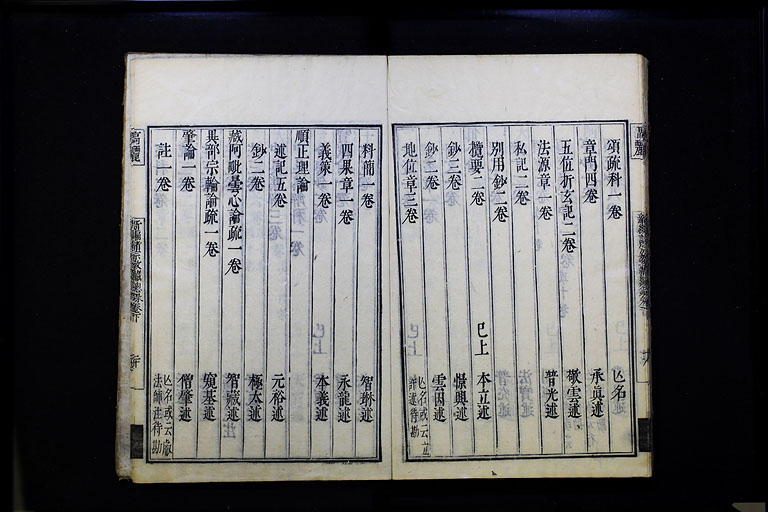 頌疏科一卷 亾名
章門四卷 承眞述
五位折玄記二卷 敬雲述
法源章一卷 普光述
私記二卷
別用鈔二卷
欖要二卷 已上 本立述
鈔三卷 憬興述
鈔二卷 雲因述
地位章三卷 亾名或云立詳述待勘
科簡一卷 智琳述
四果章一卷 永龍述
義策一卷 本義述
順正理論
述記五卷 元裕述
鈔二卷 極太述
藏阿毗曇心論疏一卷 智巖述
異部宗輪論疏一卷 窺基述
肇論一卷 僧肇述
註一卷 亾名或云廠法師注待勘